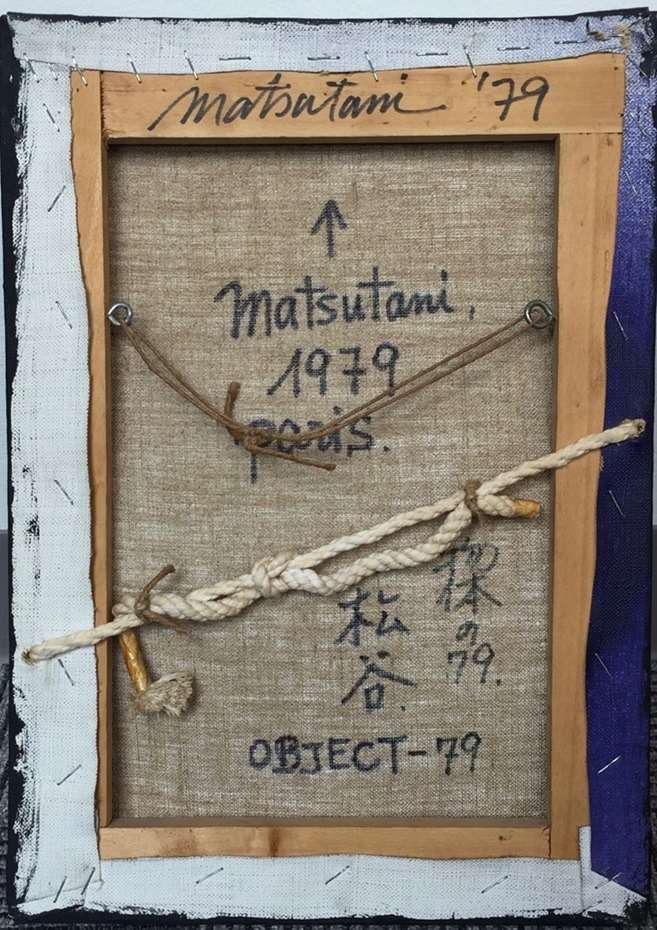 Matsutani '79
↑
Matsutani,
1979
paris.
の
79.
松
谷.
OBJECT-79